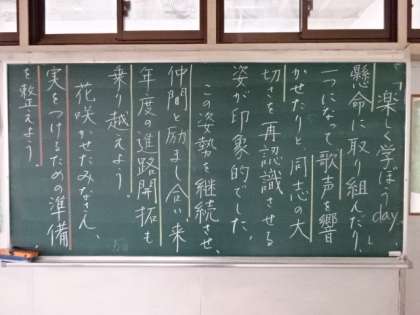 「楽しく学ぼうday」
懸命に取り組んだり、
一つになって歌声を響
かせたりと同志の大
切さを再認識させる
姿が印象的でした。
この姿勢を継続させ、
仲間と励まし合い来
年度の進路開拓も
乗り越えよう。
花咲かせたみなさん、
実をつけるための準備
を整えよう。